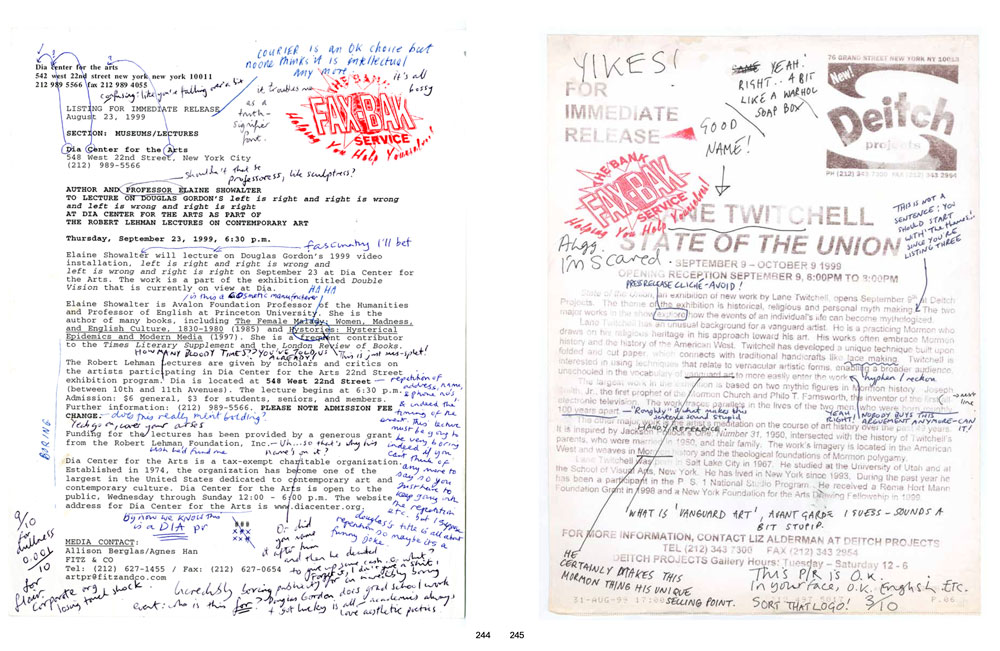 Dia center for the arts
542 west 22nd street new york new york 10011
212 989 5566 fax 212 989 4055
COURIER IS an OK choice but
no one thinks it is intellectual
any more.
it's all
bossy
confusing: like you're falling over a bit
it troubles me
as a
truth-
signifier
font.
THE BANK
FAX-BAK
SERVICE
Helping You Help Yourselves!
LISTING FOR IMMEDIATE RELEASE
August 23, 1999
SECTION: MUSEUMS/LECTURES
Dia Center for the Arts
548 West 22nd Street, New York City
(212) 989-5566
shouldn't that be
professoress, like sculptress?
AUTHOR AND PROFESSOR ELAINE SHOWALTER
TO LECTURE ON DOUGLAS GORDON'S left is right and right is wrong
and left is wrong and right is right
AT DIA CENTER FOR THE ARTS AS PART OF
THE ROBERT LEHMAN LECTURES ON CONTEMPORARY ART
Thursday, September 23, 1999, 6:30 p.m.
fascinating I'll bet
Elaine Showalter will lecture on Douglas Gordon's 1999 video
installation, left is right and right is wrong and
left is wrong and right is right on September 23 at Dia Center for
the Arts. The work is a part of the exhibition titled Double
Vision that is currently on view at Dia.
HA HA
is this a COSmetic manufacturer?
Elaine Showalter is Avalon Foundation Professor of the Humanities
and Professor of English at Princeton University. She is the
author of many books, including The Female Malady: Women, Madness,
and English Culture, 1830-1980 (1985) and Hystories: Hysterical
Epidemics and Modern Media (1997). She is a frequent contributor
to the Times Literary Supplement and the London Review of Books.
HOW MANY BLOODY TIMES? YOU'VE TOLD US
ALREADY!
This is just mis-spelt!
The Robert Lehman Lectures are given by scholars and critics on
the artists participating in Dia Center for the Arts 22nd Street
exhibition program. Dia is located at 548 West 22nd Street
(between 10th and 11th Avenues). The lecture begins at 6:30 p.m.
Admission: $6 general, $3 for students, seniors, and members.
Further information: (212) 989-5566. PLEASE NOTE ADMISSION FEE
CHANGE.
does this really merit bolding?
Yeah go on, cover your arses
repetition of
address, name,
phone no's
& indeed the
timing of the
event. This lecture
must be going to
be very boring
indeed if you
can't think of
any more to
say so you
just have to
keep going over
the repetition
etc. but I suppose
douglas's title is all about
repetition so maybe it's a
funny joke.
BORING
Funding for the lectures has been provided by a generous grant
from the Robert Lehman Foundation, Inc.
Uh... so that's why his
name's on it?
Dia Center for the Arts is a tax-exempt charitable organization.
Established in 1974, the organization has become one of the
largest in the United States dedicated to contemporary art and
contemporary culture. Dia Center for the Arts is open to the
public, Wednesday through Sunday 12:00 - 6:00 p.m. The website
address for Dia Center for the Arts is www.diacenter.org.
By now we know this
is a DIA pr
Or did
you name
it after him
and then he decided
to put up your cash
9/10
for
dullness
0.001
/10
for
flair
Corporate org
losing touch shock
MEDIA CONTACT:
Allison Berglas/Agnes Han
FITZ & CO
Tel: (212) 627-1455 / Fax: (212) 627-0654
artpr@fitzandco.com
Incredibly boring publicity for an incredibly boring
event: who is this for? Douglas Gordon does grad school work
but luckily is all academics always
love aesthetic poetics!
244 245
YIKES!
SAME YEAH.
RIGHT.. A BIT
LIKE A WARHOL
SOAP BOX
76 GRAND STREET NEW YORK NY 1001
New!
Deitch
projects
PH (212) 343 7300 FAX (212) 343 2954
FOR
IMMEDIATE
RELEASE
GOOD
NAME!
THE BANK
FAX-BAK
SERVICE
Helping You Help Yourselves!
THIS IS NOT A
SENTENCE: YOU
SHOULD START
WITH 'The themes'
SINCE YOU'RE
LISTING THREE
LANE TWITCHELL
STATE OF THE UNION
Ahgg.
I'm Scared.
SEPTEMBER 9 – OCTOBER 9 1999
OPENING RECEPTION SEPTEMBER 9, 6:00PM TO 8:00PM
PRESS RELEASE CLICHE - AVOID!
State of the union, an exhibition of new work by Lane Twitchell, opens September 9th at Deitch
Projects. The theme of the exhibition is historical, religious and personal myth making. The two
major works in the show explore how the events of an individual's life can become mythologized.
Lane Twitchell has an unusual background for a vanguard artist. He is a practicing Mormon who
draws on his religious heritage in his approach toward his art. His works often embrace Mormon
history and the history of the American West. Twitchell has developed a unique technique built upon
folded and cut paper, which connects with traditional handicrafts like lace making. Twitchell is
interested in using techniques that relate to vernacular artistic forms, enabling a broader audience,
unschooled in the vocabulary of vanguard art to more easily enter the work.
hyphen / reckon
The largest work in the exhibition is based on two mythic figures in Mormon history. Joseph
Smith, Jr., the first prophet of the Mormon Church and Philo T. Farnsworth, the inventor of the first
electronic television. The work traces parallels in the lives of the two men, who were born roughly
100 years apart.
'Roughly' is what makes this
sentence sound stupid
YEAH
RIGHT!
NOBODY BUYS THIS
ARGUMENT ANYMORE - CAN
IT!
The other major work is the artist's meditation on the course of art history over the past 40 years.
HANDY REFERENCE.
It is inspired by Jackson Pollock's One: Number 31, 1950, intersected with the history of Twitchell's
parents, who were married in 1950, and their family. The work's imagery is located in the American
West and weaves in Mormon history and the theological foundations of Mormon polygamy.
Lane Twitchell was born in Salt Lake City in 1967. He studied at the University of Utah and at
the School of Visual Arts, New York. He has lived in New York since 1993. During the past year he
has been a participant in the P. S. 1 National Studio Program. He received a Rema Hort Mann
Foundation Grant in 1998 and a New York Foundation for the Arts Drawing Fellowship in 1999.
WHAT IS 'VANGUARD ART', AVANT GARDE I GUESS - SOUNDS A
BIT STUPID.
FOR MORE INFORMATION, CONTACT LIZ ALDERMAN AT DEITCH PROJECTS
TEL (212) 343 7300 FAX (212) 343 2954
DEITCH PROJECTS Gallery Hours: Tuesday – Saturday 12 - 6
HE
CERTAINLY MAKES THIS
MORMON THING HIS UNIQUE
SELLING POINT.
This P/R is O.K.
In your face, O.K. English, ETC.
SORT THAT LOGO! 3/10
31-AUG-99 17:00
P.06